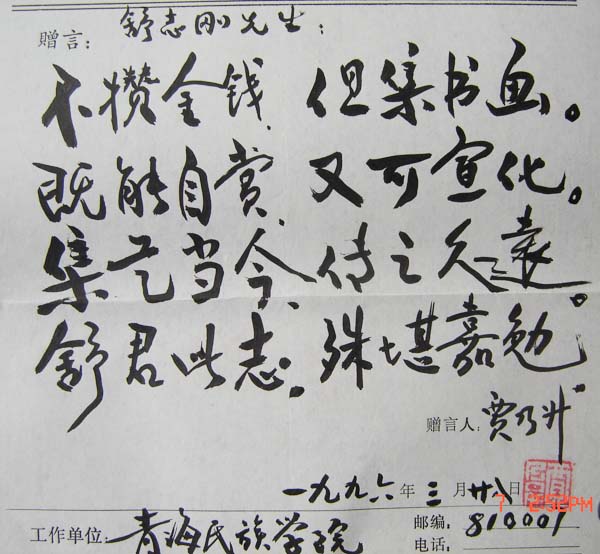 赠言: 舒志刚先生:
不攒金钱、但集书画。
既能自赏、又可宣化。
集艺当今、传之久远。
舒君此志。殊堪嘉勉。
赠言人: 贾乃升
一九九六年三月廿八日
7 2:52PM
工作单位: 青海民族学院 邮编: 810001
电话: